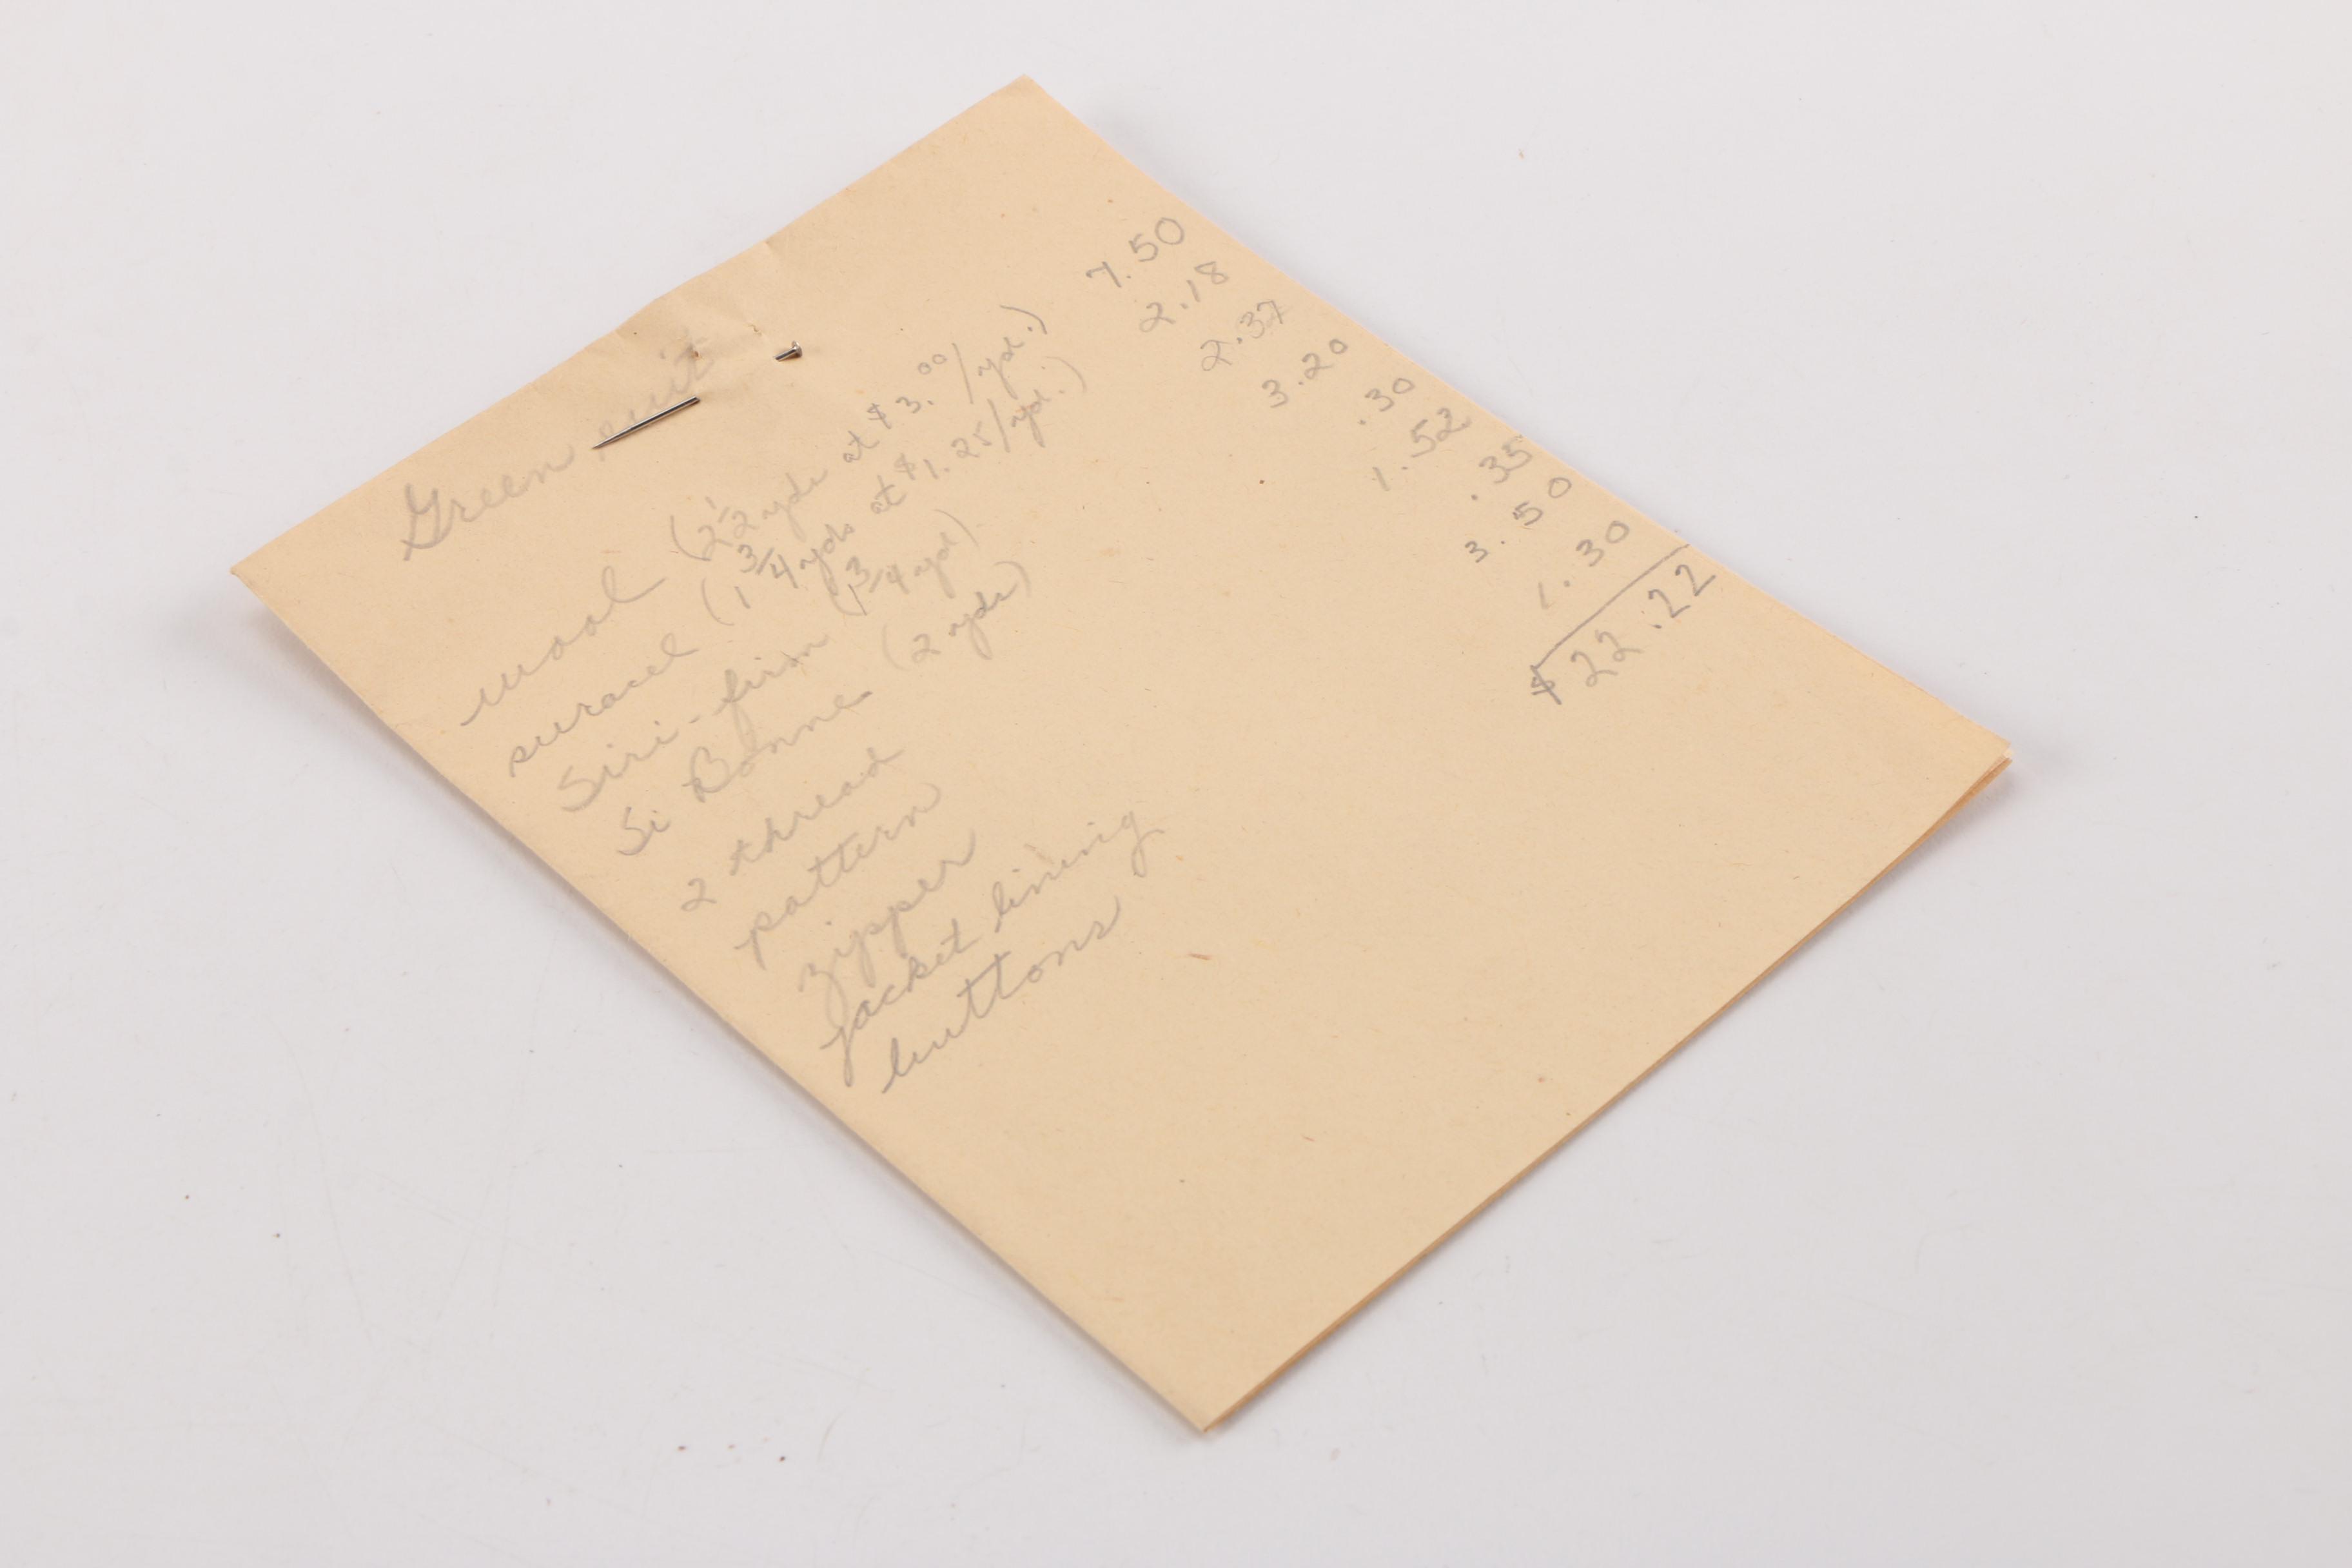 Green suit
wool (2 1/2 yds at $3.00/yd.) 7.50
suracel (1 3/4 yds at $1.25/yd.) 2.18
Siri-firm (1 3/4 yd) 2.37
Si Bonne (2 yds) 3.20
2 thread .30
pattern 1.52
zipper .35
jacket lining 3.50
buttons 1.30
$22.22